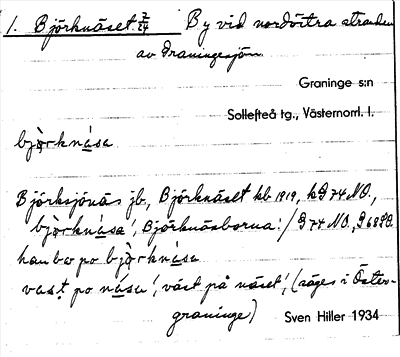 1. Björknäset. 7/24 By vid nordöstra stranden
av Graningesjön
Graninge s:n
Sollefteå tg., Västernorrl. l.
bjòrknåsa
Björksjönäs jb, Björknäset kb 1919, kG 74 NO.,
bjòrknåsa!, Björknäsborna! / G 74 NO., G 68 SO.
han bor po bjòrknåsa
vast po nåsa!, väst på näset!, (säges i Öster-
graninge)
Sven Hiller 1934